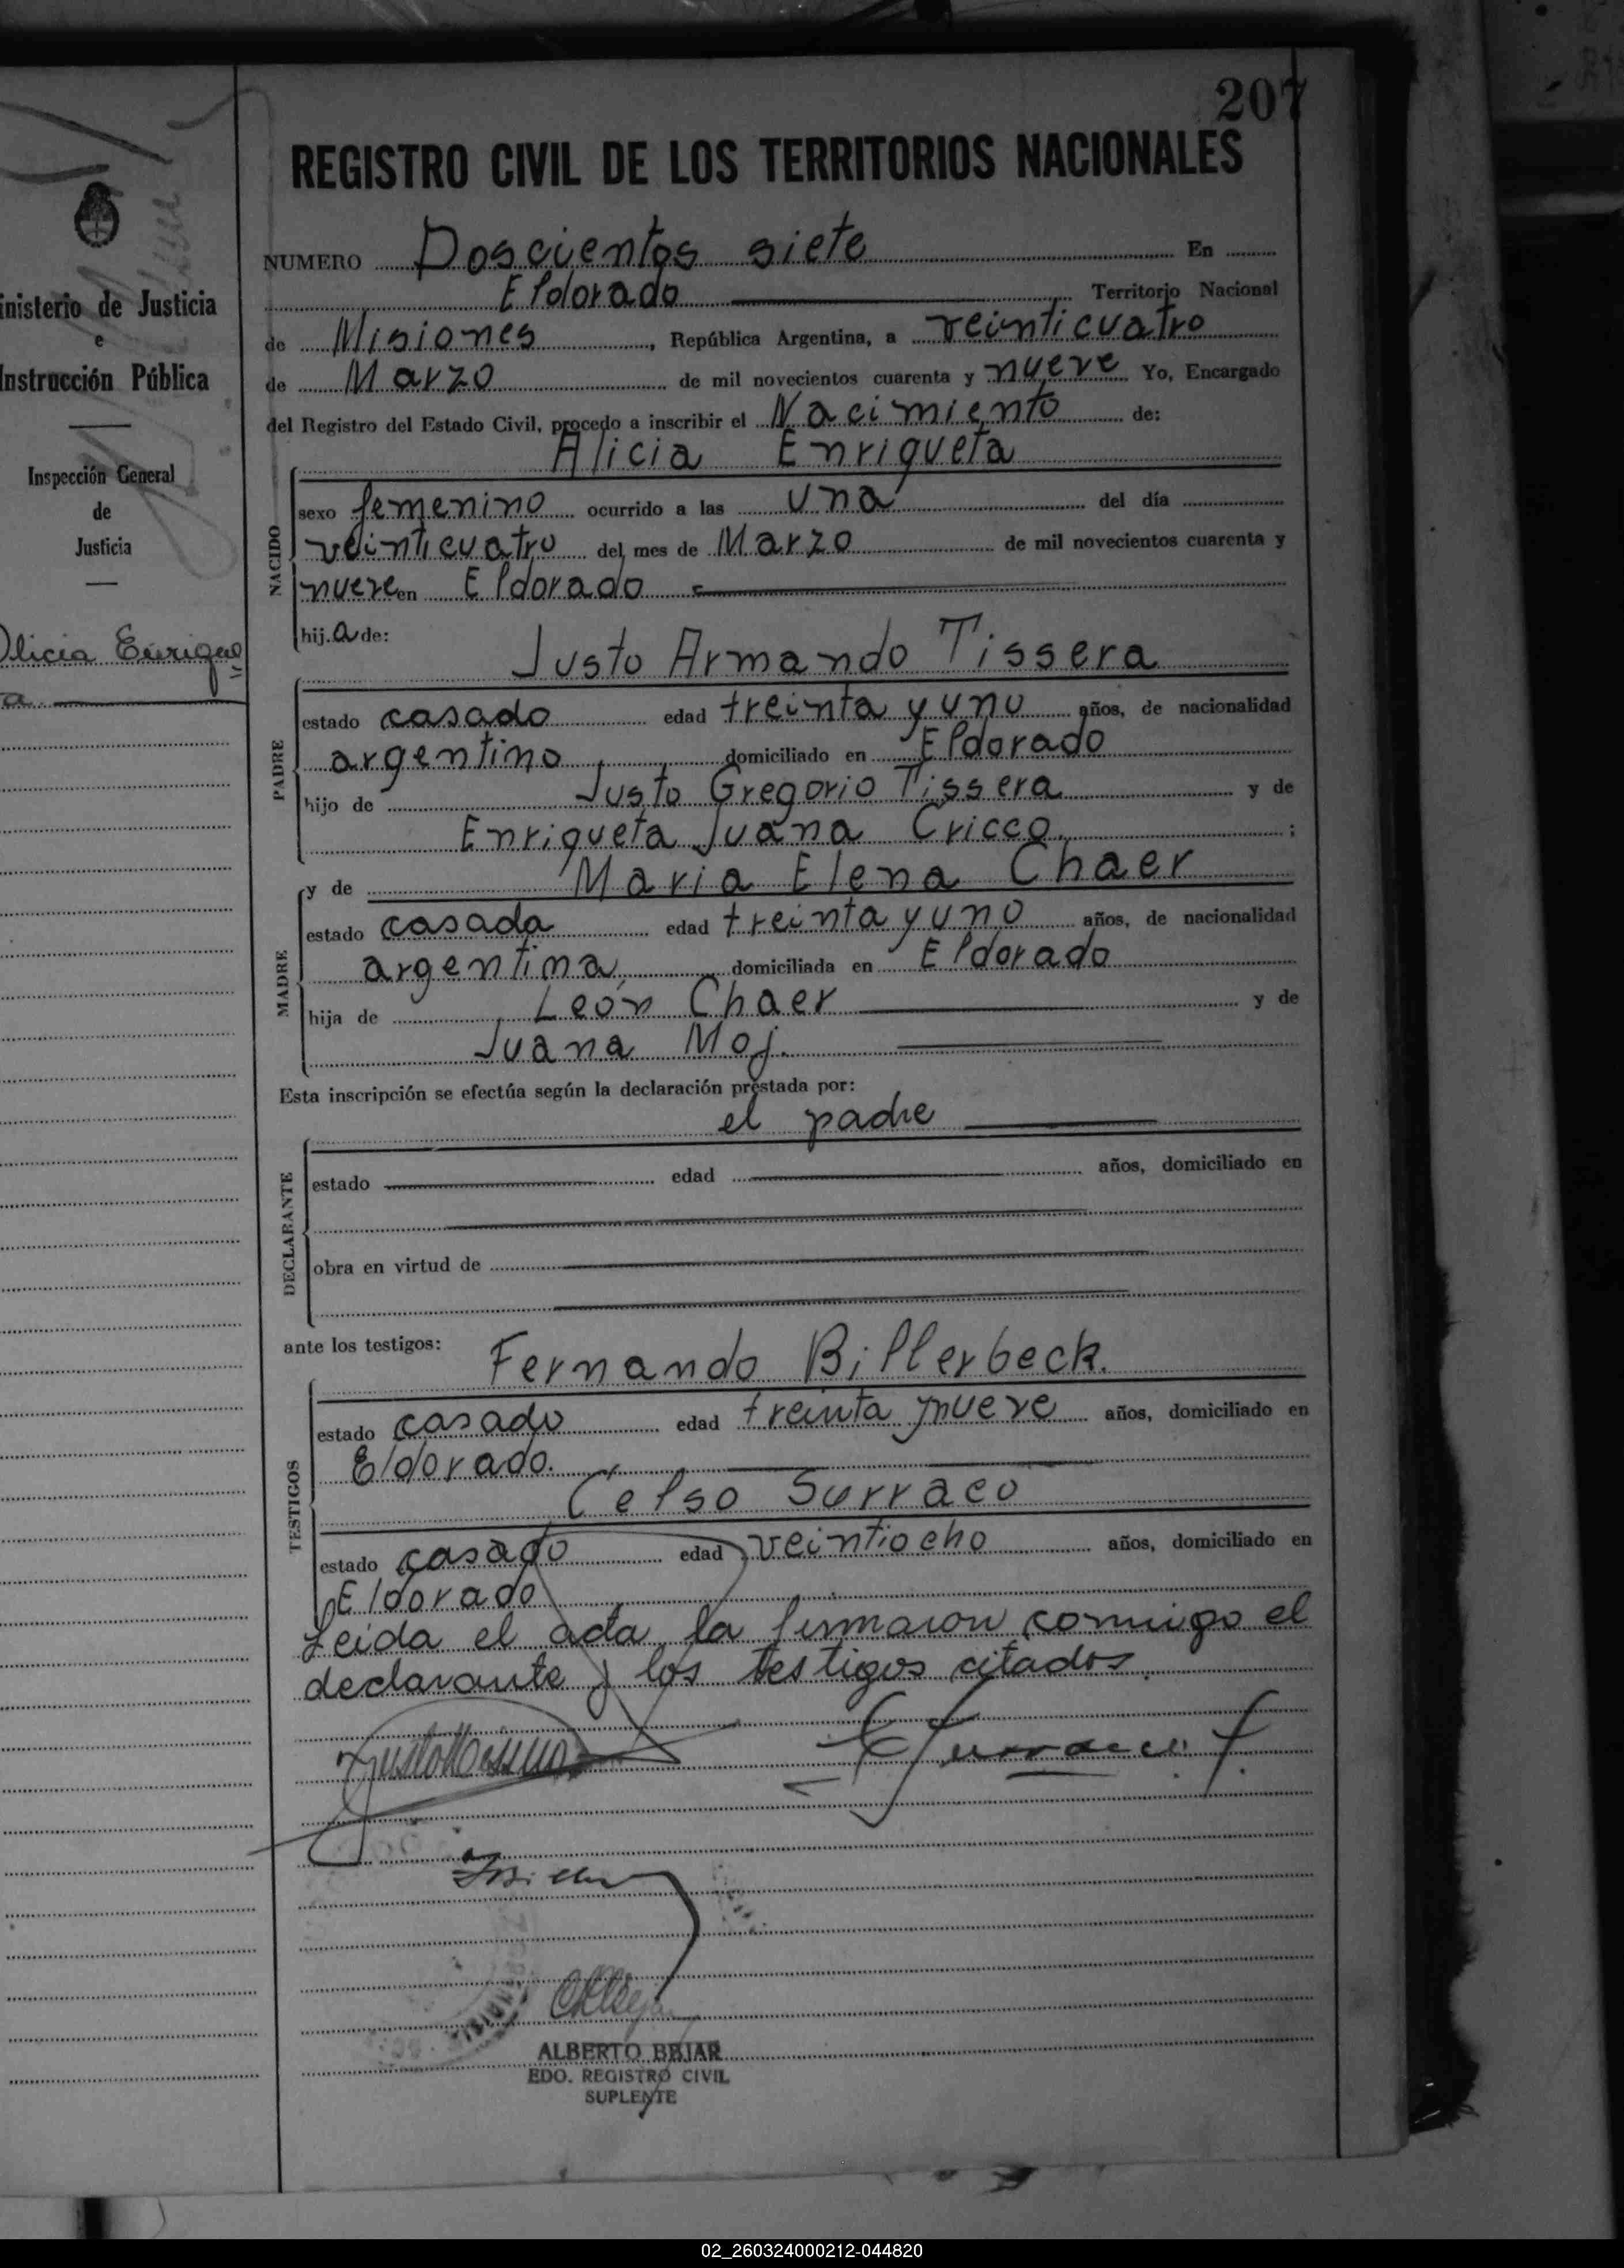 207
REGISTRO CIVIL DE LOS TERRITORIOS NACIONALES
NUMERO Doscientos siete En
Eldorado Territorio Nacional
de Misiones, República Argentina, a veinticuatro
de Marzo de mil novecientos cuarenta y nueve Yo, Encargado
del Registro del Estado Civil, procedo a inscribir el Nacimiento de:
Alicia Enriqueta
NACIDO
sexo femenino ocurrido a las una del día
veinticuatro del mes de Marzo de mil novecientos cuarenta y
nueve en Eldorado
hij.a de:
Justo Armando Tissera
PADRE
estado casado edad treinta y uno años, de nacionalidad
argentino domiciliado en Eldorado
hijo de Justo Gregorio Tissera y de
Enriqueta Juana Cricco. ;
y de Maria Elena Chaer
MADRE
estado casada edad treinta y uno años, de nacionalidad
argentina domiciliada en Eldorado
hija de León Chaer y de
Juana Moj.
Esta inscripción se efectúa según la declaración prestada por:
el padre
DECLARANTE
estado edad años, domiciliado en
obra en virtud de
ante los testigos:
Fernando Billerbeck.
TESTIGOS
estado casado edad treinta y nueve años, domiciliado en
Eldorado.
Celso Surraco
estado casado edad veintiocho años, domiciliado en
Eldorado
Leida el acta, la firmaron conmigo el
declarante y los testigos citados.
ALBERTO BEJAR
EDO. REGISTRO CIVIL
SUPLENTE
inisterio de Justicia
e
Instrucción Pública
Inspección General
de
Justicia
Alicia Enrique
ta
02_260324000212-044820